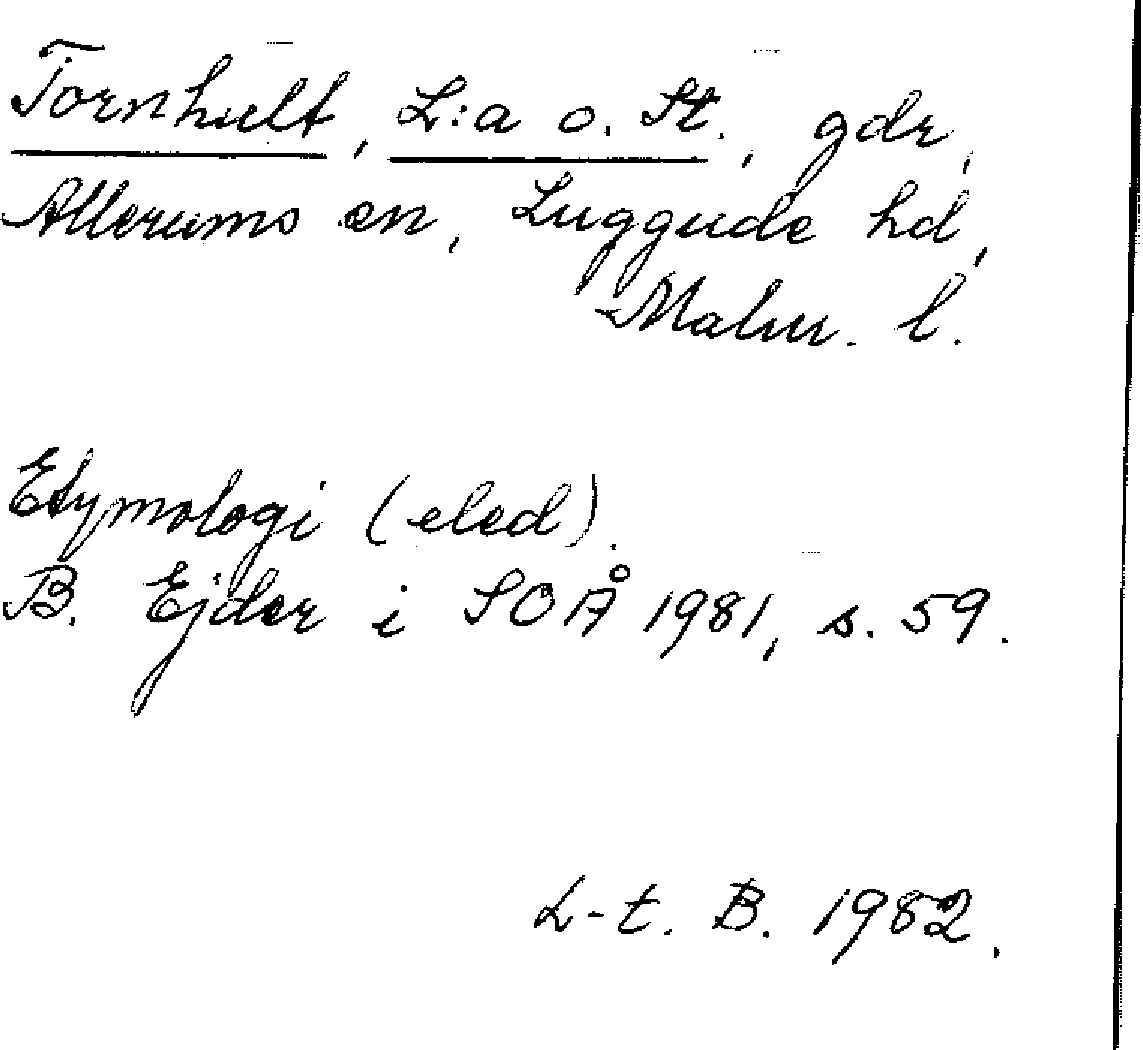 Tornhult, L:a o. St., gdr,
Allerums sn, Luggude hd,
Malm. l.
Etymologi (eled).
B. Ejder i SOÅ 1981, s. 59.
L-t. B. 1982.